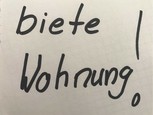 biete
Wohnung!